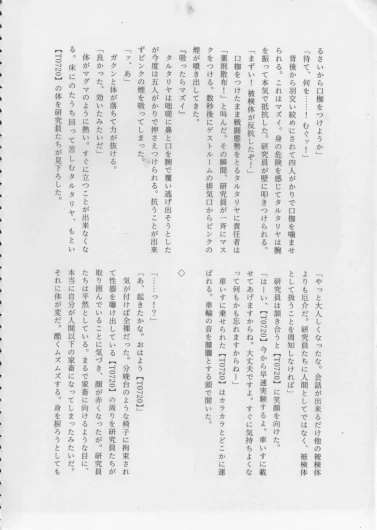 るさいから口枷をつけようか」
「待て、何を……！　むぐッ！」
背後から羽交い絞めにされて四人がかりで口枷を噛ませ
られる。これはマズイ。身の危険を感じてタルタリヤは腕
を振って本気で抵抗した。研究員が壁に叩きつけられる。
「まずい！　被検体が反抗したぞ！」
口枷をつけたまま戦闘態勢をとるタルタリヤに責任者は
「薬剤散布！」と叫んだ。その瞬間、研究員が一斉にマス
クをつける。数秒後にゲストルームの排気口からピンクの
煙が噴き出してきた。
『吸ったらマズイ』
タルタリヤは咄嗟に鼻と口を腕で覆い逃げ出そうとした
が今度は五人がかりで押さえつけられる。抗うことが出来
ずピンクの煙を吸ってしまった。
「ッ、あ」
ガクンと体が落ちて力が抜ける。
「良かった、効いたみたいだ」
体がマグマのように熱い。すぐに立つことが出来なくな
る。床にのたうち回って苦しむタルタリヤ、もとい
【T0720】の体を研究員たちが見下ろした。
「やっと大人しくなったな。会話が出来るだけ他の被検体
よりも厄介だ。研究員たちに人間としてではなく、被検体
として扱うことを周知しなければ」
研究員は頷き合うと【T0720】に笑顔を向けた。
「はーい、【T0720】今から早速実験するよ。車いすに載
せてあげますからね。大丈夫ですよ。すぐに気持ちよくな
って何もかも忘れますからね！」
車いすに乗せられた【T0720】はカラカラとどこかに運
ばれる。車輪の音を朦朧とする頭で聞いた。
◇
「……っ！？」
「あ、起きたかな。おはよう【T0720】」
気が付けば全裸だった。分娩台のような椅子に拘束され
て性器を曝け出している【T0720】の周りを研究員たちが
取り囲んでいることに気づき、顔が赤くなったが。研究員
たちは平然としている。まるで家畜に向けるような目に、
本当に自分が人間以下の家畜になってしまったみたいだ。
それに体が変だ。酷くムズムズする。身を捩ろうとしても